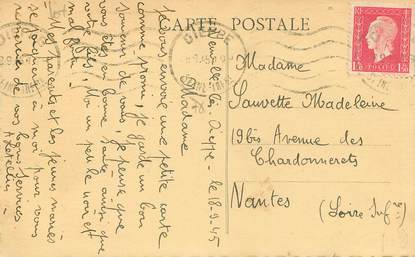 CARTE POSTALE
DIEPPE
Dieppe le 18-9-45
Madame
Je vous envoie une petite carte
comme promis, je garde un bon
souvenir de vous, je pense que
vous êtes en bonne santé ainsi que
votre fils, Moi un petit le noir est
mal fait!
Mes parents et les jeunes mariés
se joignent à moi pour vous
remercier de vos bons services.
Madame
Sauvette Madeleine
19bis Avenue des
Chardonnerets
Nantes
(Loire Infre)